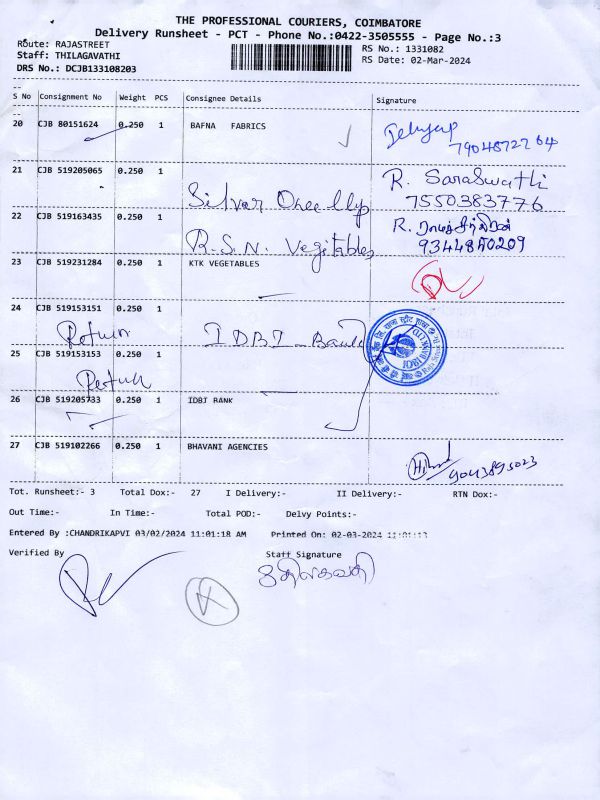 THE PROFESSIONAL COURIERS, COIMBATORE
Delivery Runsheet - PCT - Phone No.:0422-3505555 - Page No.:3
Route: RAJASTREET
RS No.: 1331082
Staff: THILAGAVATHI
RS Date: 02-Mar-2024
DRS No.: DCJB133108203
S No Consignment No Weight PCS Consignee Details Signature
20 CJB 80151624 0.250 1 BAFNA FABRICS
7904872264
21 CJB 519205065 0.250 1 R. Saraswathi
7550383776
22 CJB 519163435 0.250 1 R.
R.S.N. Vegitables 9344850209
23 CJB 519231284 0.250 1 KTK VEGETABLES
24 CJB 519153151 0.250 1
Return IDBI - Bank
25 CJB 519153153 0.250 1
Return
26 CJB 519205733 0.250 1 IDBI BANK
27 CJB 519102266 0.250 1 BHAVANI AGENCIES
9043895023
Tot. Runsheet:- 3 Total Dox:- 27 I Delivery:- II Delivery:- RTN Dox:-
Out Time:- In Time:- Total POD:- Delvy Points:-
Entered By :CHANDRIKAPVI 03/02/2024 11:01:18 AM Printed On: 02-03-2024
Verified By Staff Signature
திலகவதி